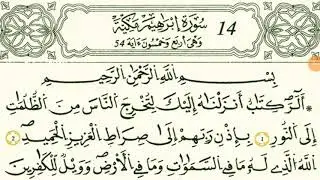 سُورَةُ إِبْرَٰهِيمَ مَكِّيَّة 14
وَهْىَ أَرْبَعٌ وَخَمْسُونَ ءَايَة 54
بِسْمِ اللَّهِ الرَّحْمَٰنِ الرَّحِيمِ
* أَلَٓر كِتَٰبٌ أَنزَلْنَٰهُ إِلَيْكَ لِتُخْرِجَ النَّاسَ مِنَ الظُّلُمَٰتِ
إِلَى النُّورِ ① بِإِذْنِ رَبِّهِمْ إِلَىٰ صِرَٰطِ الْعَزِيزِ الْحَمِيدِ ②
اللَّهُ الَّذِى لَهُۥ مَا فِى السَّمَٰوَٰتِ وَمَا فِى الْأَرْضِ وَوَيْلٌ لِّلْكَٰفِرِينَ